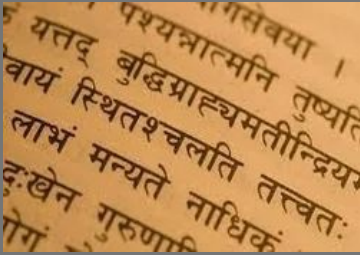 गसेवया ।
पश्यन्नात्मनि तुष्यति
यत्तद् बुद्धिग्राह्यमतीन्द्रियम
वायं स्थितश्चलति तत्त्वतः
लाभं मन्यते नाधिकं
दुःखेन गुरुणा